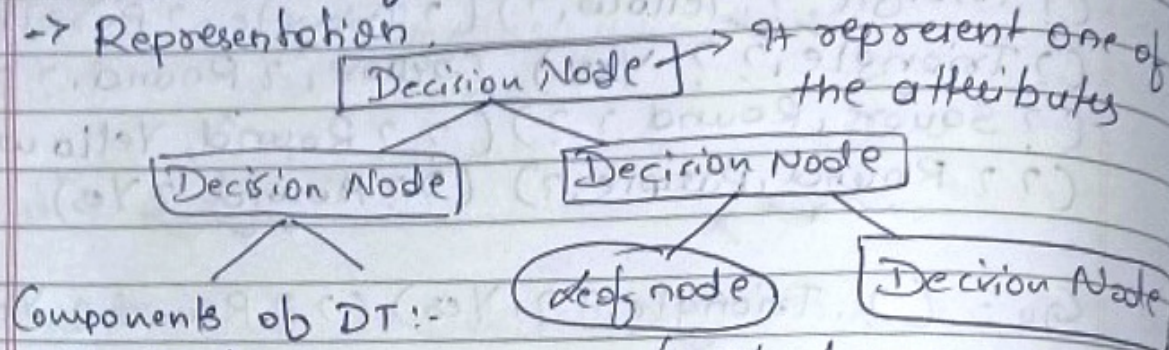 -> Representation.
Decision Node -> It represent one of
the attributes
Decision Node Decision Node
leaf node Decision Node
Components of DT :-